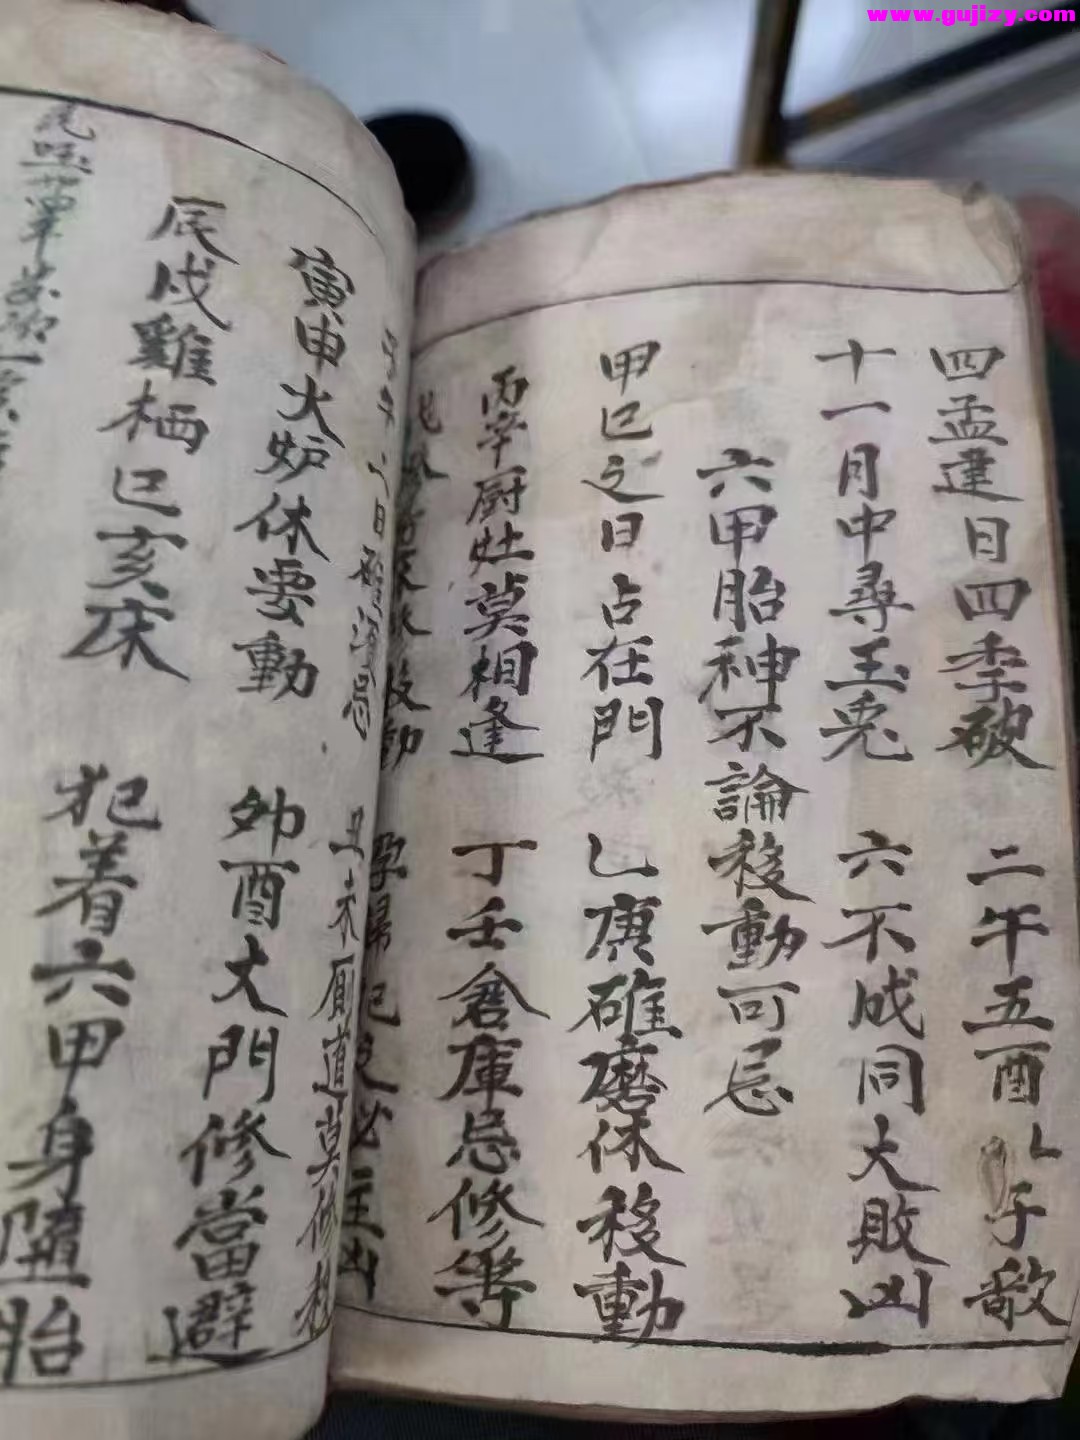 www.gujizy.com
四孟建日四季破 二午五酉八子敵
十一月中尋玉兎 六不成同大敗凶
六甲胎神不論移動可忌
甲巳之日占在門 乙庚碓磨休移動
丙辛厨灶莫相逢 丁壬倉庫忌修
子午 日碓須忌 丑未厠道莫修移
寅申火炉休要動 夘酉大門修當避
辰戌雞栖巳亥床 犯着六甲身隨胎